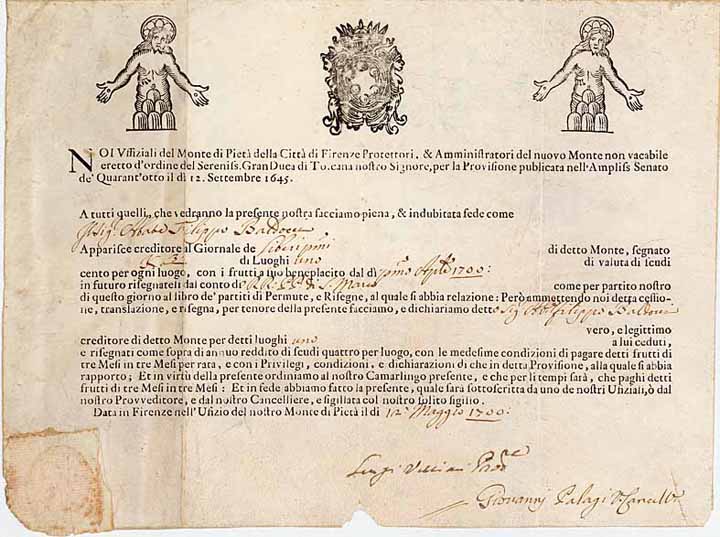 NOI Vffiziali del Monte di Pietà della Città di Firenze Protettori, & Amministratori del nuovo Monte non vacabile
eretto d'ordine del Sereniss. Gran Duca di Toscana nostro Signore, per la Provisione publicata nell'Ampliss Senato
de' Quarant'otto il dì 12. Settembre 1645.
A tutti quelli, che vedranno la presente nostra facciamo piena, & indubitata fede come
Filippo Baldocci
Apparisce creditore al Giornale de di detto Monte, segnato
di Luoghi uno di valuta di scudi
cento per ogni luogo, con i frutti a suo beneplacito dal dì pmo 1700:
in futuro risegnateli dal conto de come per partito nostro
di questo giorno al libro de' partiti di Permute, e Risegne, al quale si abbia relazione: Però ammettendo noi detta cessio-
ne, translazione, e risegna, per tenore della presente facciamo, e dichiariamo detto Filippo Baldocci
vero, e legittimo
creditore di detto Monte per detti luoghi uno a lui ceduti,
e risegnati come sopra di annuo reddito di scudi quattro per luogo, con le medesime condizioni di pagare detti frutti di
tre Mesi in tre Mesi per rata, e con i Privilegi, condizioni, e dichiarazioni di che in detta Provisione, alla quale si abbia
rapporto; Et in virtù della presente ordiniamo al nostro Camarlingo presente, e che per li tempi sarà, che paghi detti
frutti di tre Mesi in tre Mesi: Et in fede abbiamo fatto la presente, quale sarà sottoscritta da uno de nostri Ufiziali, ò dal
nostro Provveditore, e dal nostro Cancelliere, e sigillata col nostro solito sigillo.
Data in Firenze nell'Ufizio del nostro Monte di Pietà il dì 12 Maggio 1700:
Luigi
Giovanni Palagi